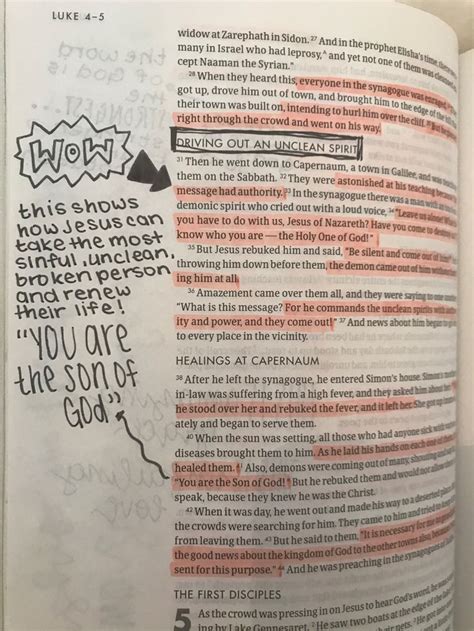 LUKE 4–5
widow at Zarephath in Sidon. 27 And in the prophet Elisha's time, there
many in Israel who had leprosy, and yet not one of them was cleansed
cept Naaman the Syrian."
28 When they heard this, everyone in the synagogue was enraged.
got up, drove him out of town, and brought him to the edge of the
their town was built on, intending to hurl him over the cliff. But he
right through the crowd and went on his way.
DRIVING OUT AN UNCLEAN SPIRIT
31 Then he went down to Capernaum, a town in Galilee, and was
them on the Sabbath. 32 They were astonished at his teaching because
message had authority. 33 In the synagogue there was a man with an
demonic spirit who cried out with a loud voice, 34 "Leave us alone! What
you have to do with us, Jesus of Nazareth? Have you come to destroy
know who you are — the Holy One of God!"
35 But Jesus rebuked him and said, "Be silent and come out of him!"
throwing him down before them, the demon came out of him without
ing him at all.
36 Amazement came over them all, and they were saying to one
"What is this message? For he commands the unclean spirits with
ity and power, and they come out!" 37 And news about him began
to every place in the vicinity.
HEALINGS AT CAPERNAUM
38 After he left the synagogue, he entered Simon's house. Simon's
in-law was suffering from a high fever, and they asked him about her.
he stood over her and rebuked the fever, and it left her. She got up
ately and began to serve them.
40 When the sun was setting, all those who had anyone sick with
diseases brought them to him. As he laid his hands on each one of
healed them. 41 Also, demons were coming out of many, shouting and
"You are the Son of God!" But he rebuked them and would not allow
speak, because they knew he was the Christ.
42 When it was day, he went out and made his way to a deserted place
the crowds were searching for him. They came to him and tried to
from leaving them. 43 But he said to them, "It is necessary for me to
the good news about the kingdom of God to the other towns also, because
sent for this purpose." 44 And he was preaching in the synagogues of
THE FIRST DISCIPLES
5 As the crowd was pressing in on Jesus to hear God's word, he was
ing by Lake Gennesaret. 2 He saw two boats at the edge of the
WOW
this shows
how Jesus can
take the most
sinful, unclean,
broken person
and renew
their life!
"YOU are
the son of
God"